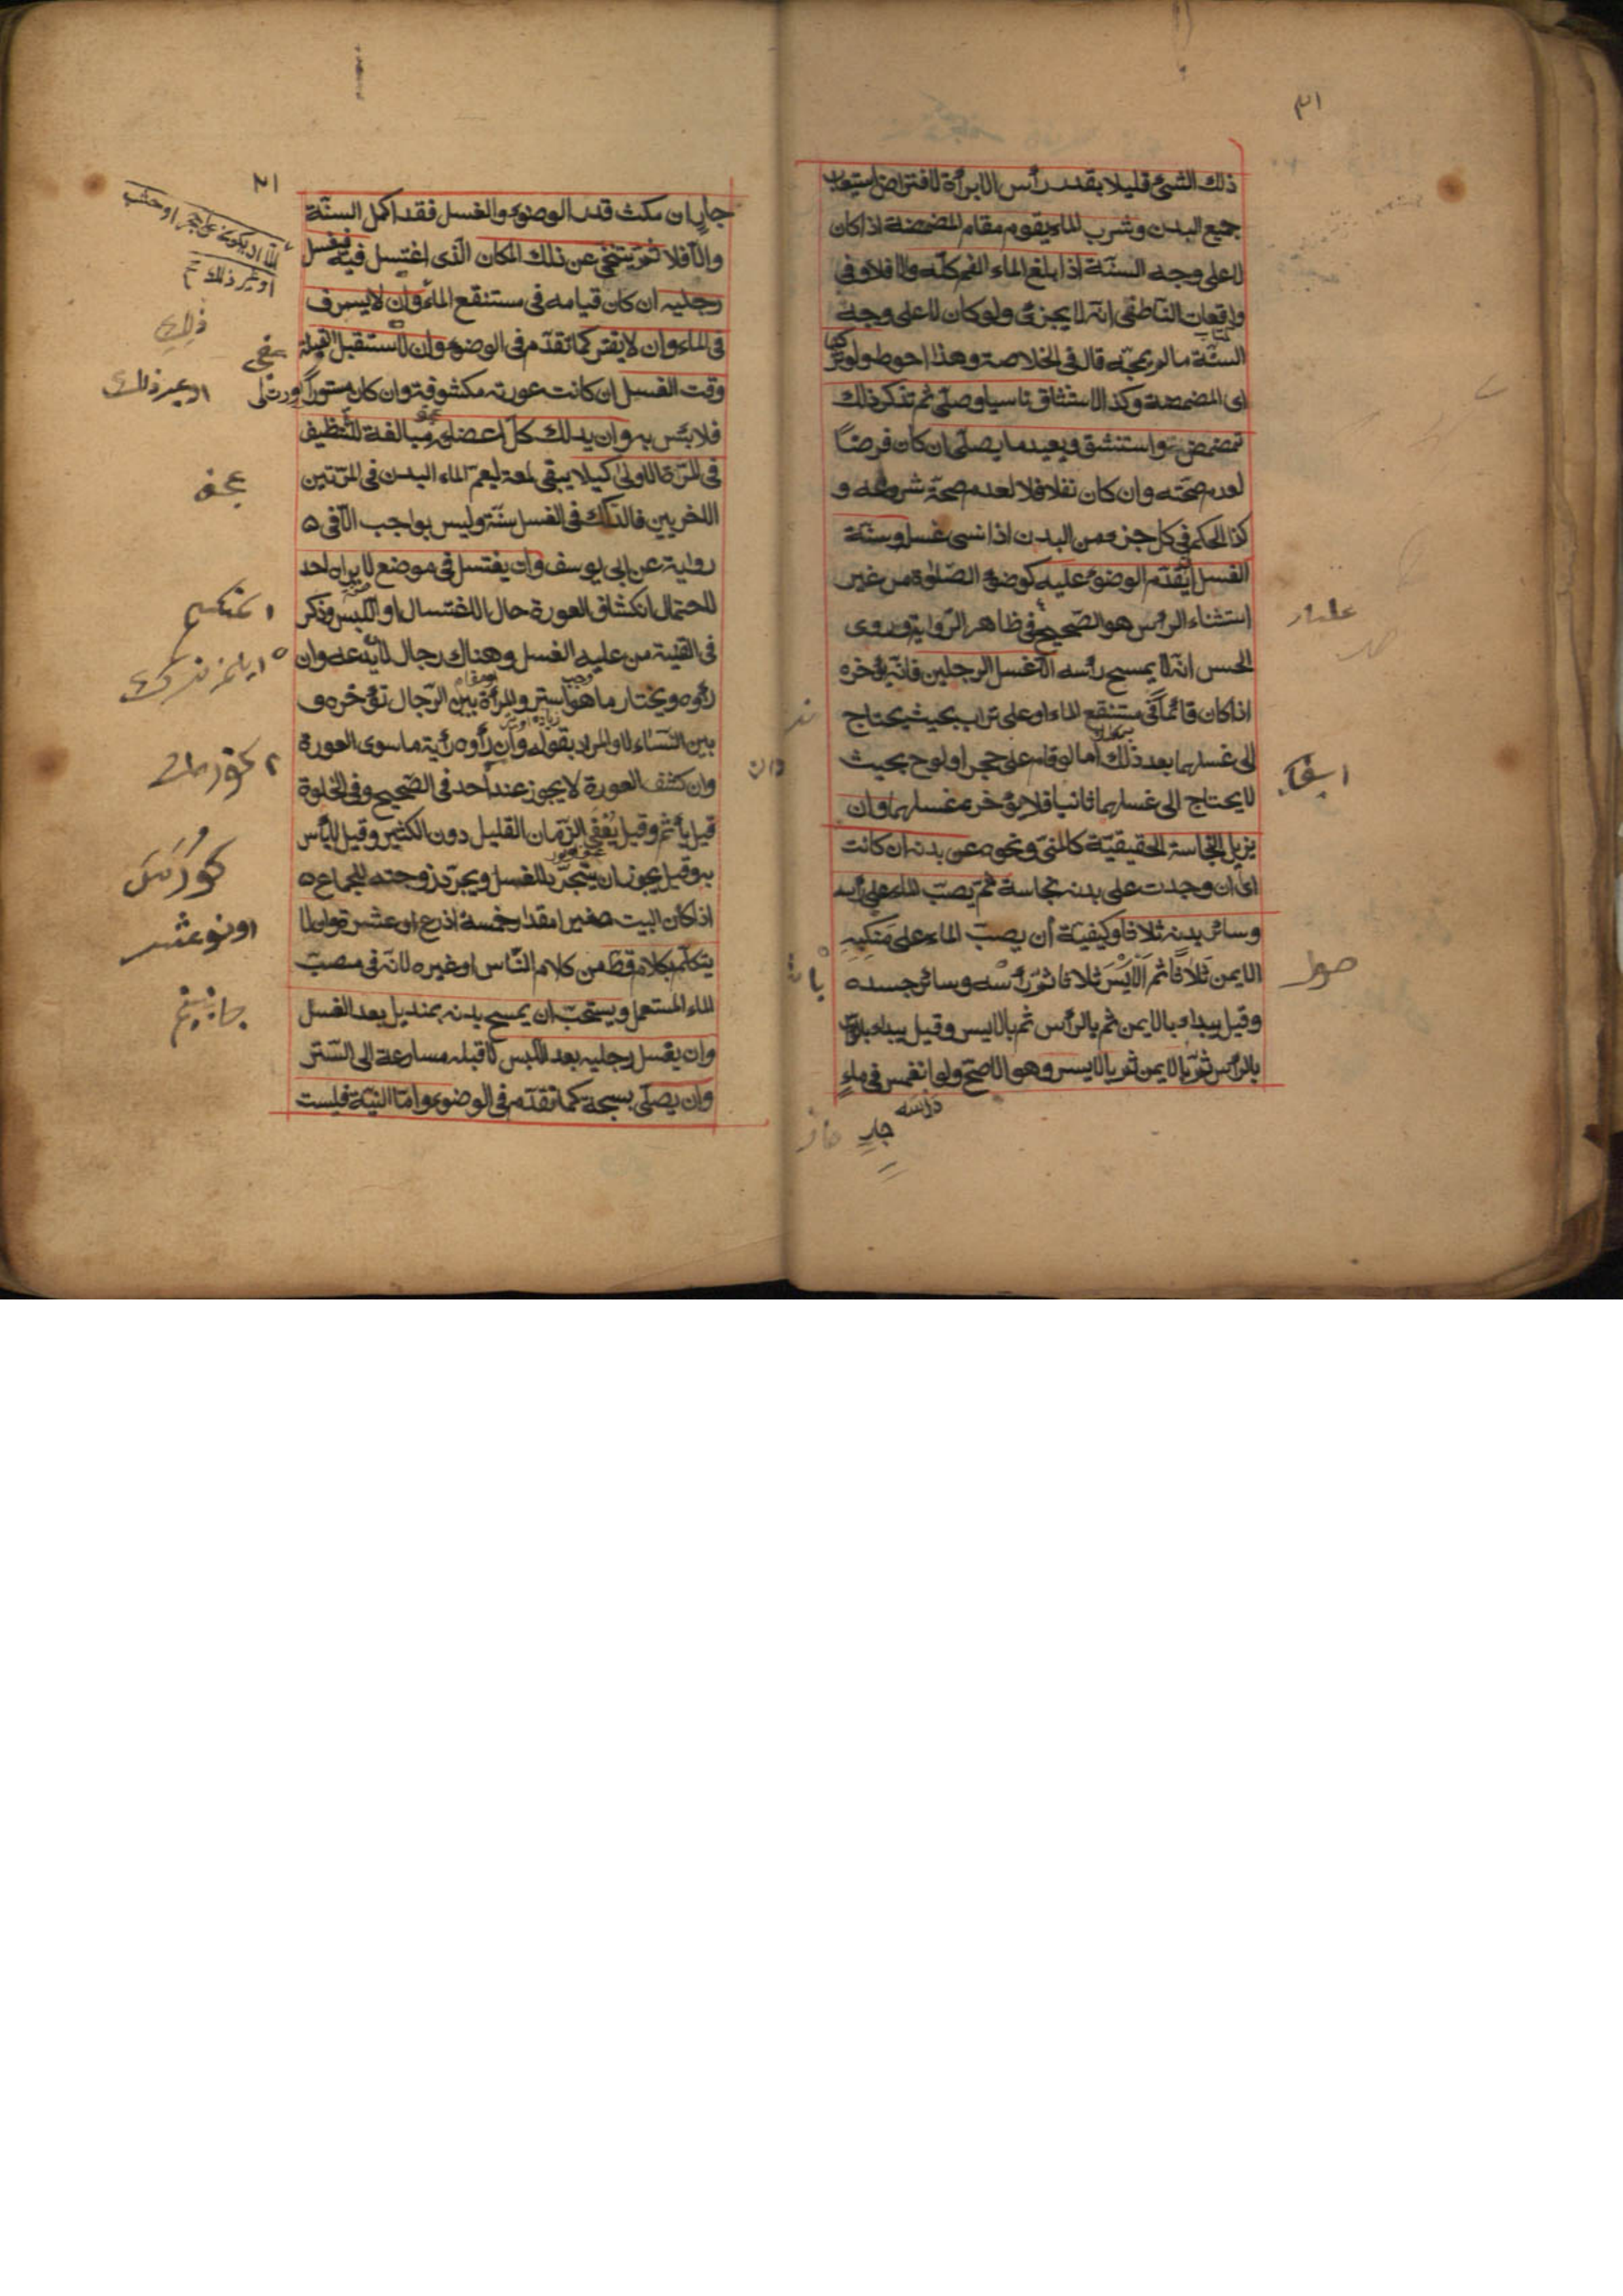 ذلك الشئ قليلا بقدر رأس الابرأة لافتراض استيعاب
جميع البدن وشرب الماء يقوم مقام المضمضة اذا كان
لا على وجه السنّة اذا بلغ الماء الفم كلّه والا فلا وفى
واقعات الناطقى انّه لا يجزئ ولو كان لا على وجه
السنّة ما لم يمجّه قال فى الخلاصة وهذا احوط ولو تركها
اى المضمضة وكذا الاستنشاق ناسيا وصلّى ثم تذكر ذلك
تمضمض واستنشق ويعيد ما يصلّى ان كان فرضاً
لعدم صحّته وان كان نفلا فلا لعدم صحّة شروعه و
كذا الحكم فى كل جزء من البدن اذا نسى غسله وسنّة
الغسل ان يقدّم الوضوء عليه كوضوء الصّلوة من غير
استثناء الرأس هو الصّحيح فى ظاهر الرّواية وروى
الحسن انّه لا يمسح رأسه الّا غسل الرجلين فانّه يؤخره
اذا كان قائماً فى مستنقع الماء او على تراب بحيث يحتاج
الى غسلهما بعد ذلك اما لو قام على حجر او لوح بحيث
لا يحتاج الى غسلهما ثانيا فلا يؤخر غسلهما وان
يزيل النجاسة الحقيقيّة كالمنىّ ونحوه عن بدنه ان كانت
اى ان وجدت على بدنه نجاسة ثمّ يصبّ الماء على رأسه
وسائر بدنه ثلاثا وكيفيّة أن يصبّ الماء على مَنكِبِهِ
الايمن ثلاثاً ثم الايْسَر ثلاثا ثمّ رأسه وسائر جسده
وقيل يبداء بالايمن ثم بالرأس ثم بالايسر وقيل يبداء
بالرأس ثمّ بالايمن ثم بالايسر وهو الاصحّ ولو انغمس فى ماءٍ
جارٍ
جارٍ ان مكث قدر الوضوء والغسل فقد اكمل السنّة
والّا فلا ثمّ يتنحّى عن ذلك المكان الّذى اغتسل فيه فيغسل
رجليه ان كان قيامه فى مستنقع الماء وان لا يسرف
فى الماء وان لا يقتر كما تقدّم فى الوضوء وان لا يستقبل القبلة
وقت الغسل ان كانت عورته مكشوفة وان كان مستوراً
فلا بئس به وان يدلك كلّ اعضائه مبالغة للتّنظيف
فى المرّة الاولى كيلا يبقى لمعة ليعم الماء البدن فى المرّتين
الاخريين فالدّلك فى الغسل سنّة وليس بواجب الّا فى
رواية عن ابى يوسف وان يغتسل فى موضع لا يراه احد
لاحتمال انكشاف العورة حال الاغتسال او اللّبس وذكر
فى القنية من عليه الغسل وهناك رجال لا يدعه وان
رأوه ويختار ما هو استر والمرأة بين الرّجال تؤخره و
بين النّساء لا والمراد بقوله وان رأوه رأية ما سوى العورة
وان كشف العورة لا يجوز عند أحد فى الصّحيح وفى الخلوة
قيل يأثم وقيل يُعْفى الزّمان القليل دون الكثير وقيل لا بأس
به وقيل يجوز ان يتجرّد للغسل ويجرّد زوجته للجماع
اذا كان البيت صغيرا مقدار خمسة اذرع او عشرة وان لا
يتكلّم بكلام قطّ من كلام النّاس او غيره لانّه فى مصبّ
الماء المستعمل ويستحبّ ان يمسح بدنه بمنديل بعد الغسل
وان يغسل رجليه بعد اللّبس لا قبله مسارعة الى السّتر
وان يصلّى بسبحة كما تقدّم فى الوضوء وامّا النيّة فليست